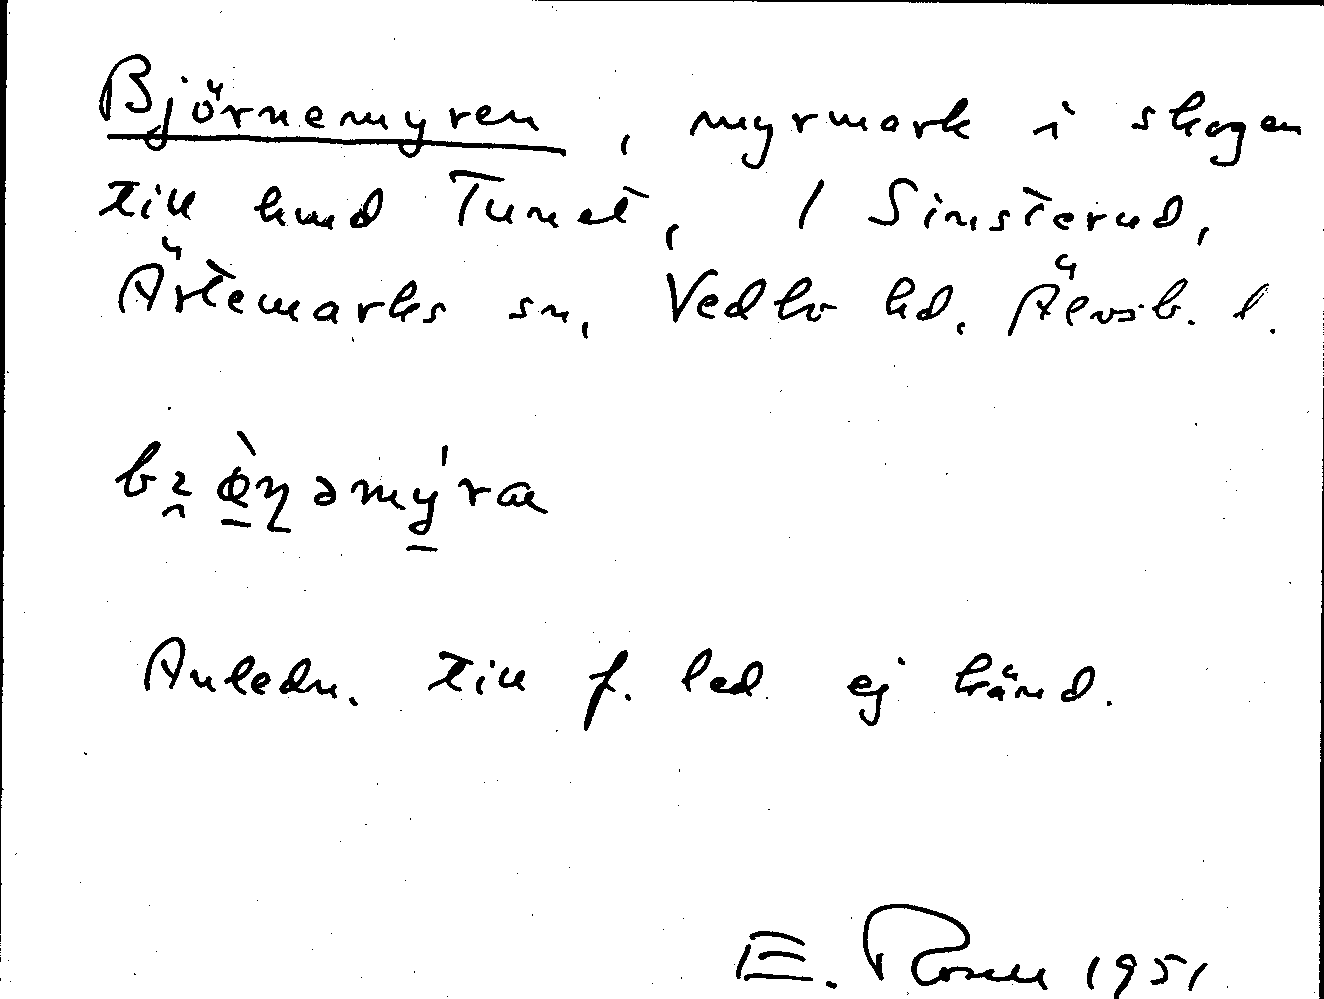 Björnemyren, myrmark i skogen
till hmd Tunet, 1 Sinsterud,
Ärtemarks sn, Vedbo hd, Älvsb. l.
Anledn. till f. led ej känd.
E. 1951